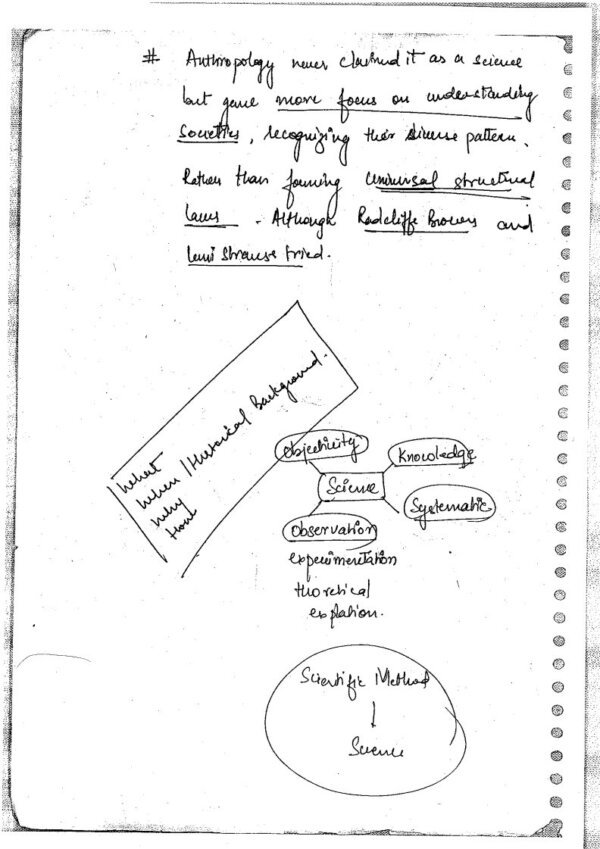 # Anthropology never claimed it as a science
but gave more focus on understanding
Societies, recognizing their diverse pattern.
Rather than forming universal structural
laws. Although Radcliffe Browns and
Levi Strauss tried.
What
When / Historical Background.
Why
How
Objectivity
Knowledge
Science
Systematic
Observation
experimentation
thoretical
explation.
Scientific Method
Science